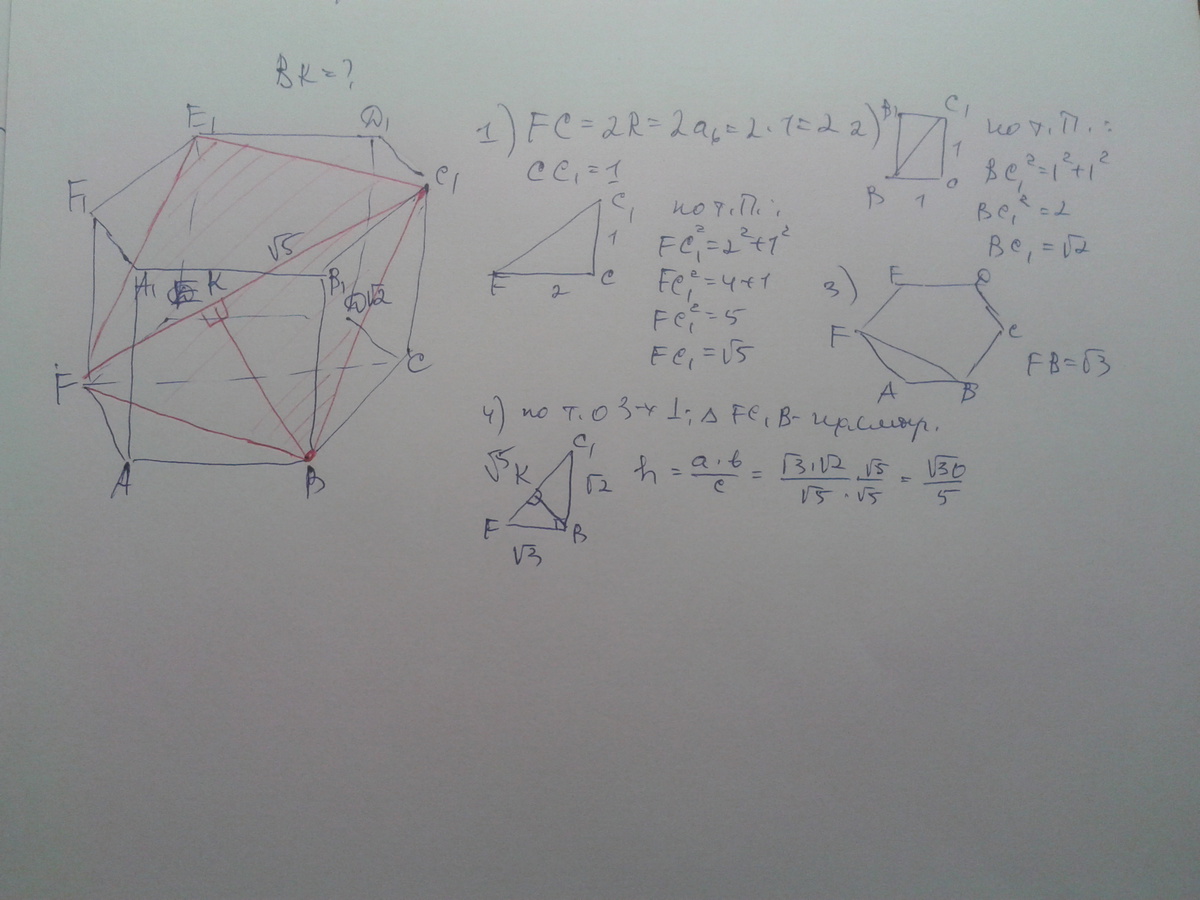 BK = ?
E₁ D₁
F₁ C₁
√5
A₁ K B₁ √2
D
F C
A B
1) FC = 2R = 2a₆ = 2·1 = 2
CC₁ = 1
C₁
1
F 2 C
по т.П.:
FC₁² = 2² + 1²
FC₁² = 4+1
FC₁² = 5
FC₁ = √5
2)
B₁ C₁
1
B 1 C
по т.П.:
BC₁² = 1² + 1²
BC₁² = 2
BC₁ = √2
3)
E D
F C
A B
FB = √3
4) по т. о 3-х ⊥: Δ FC₁B - прямоуг.
C₁
√5 K √2
F B
√3
h = a·b/c = √3·√2/√5 · √5/√5 = √30/5